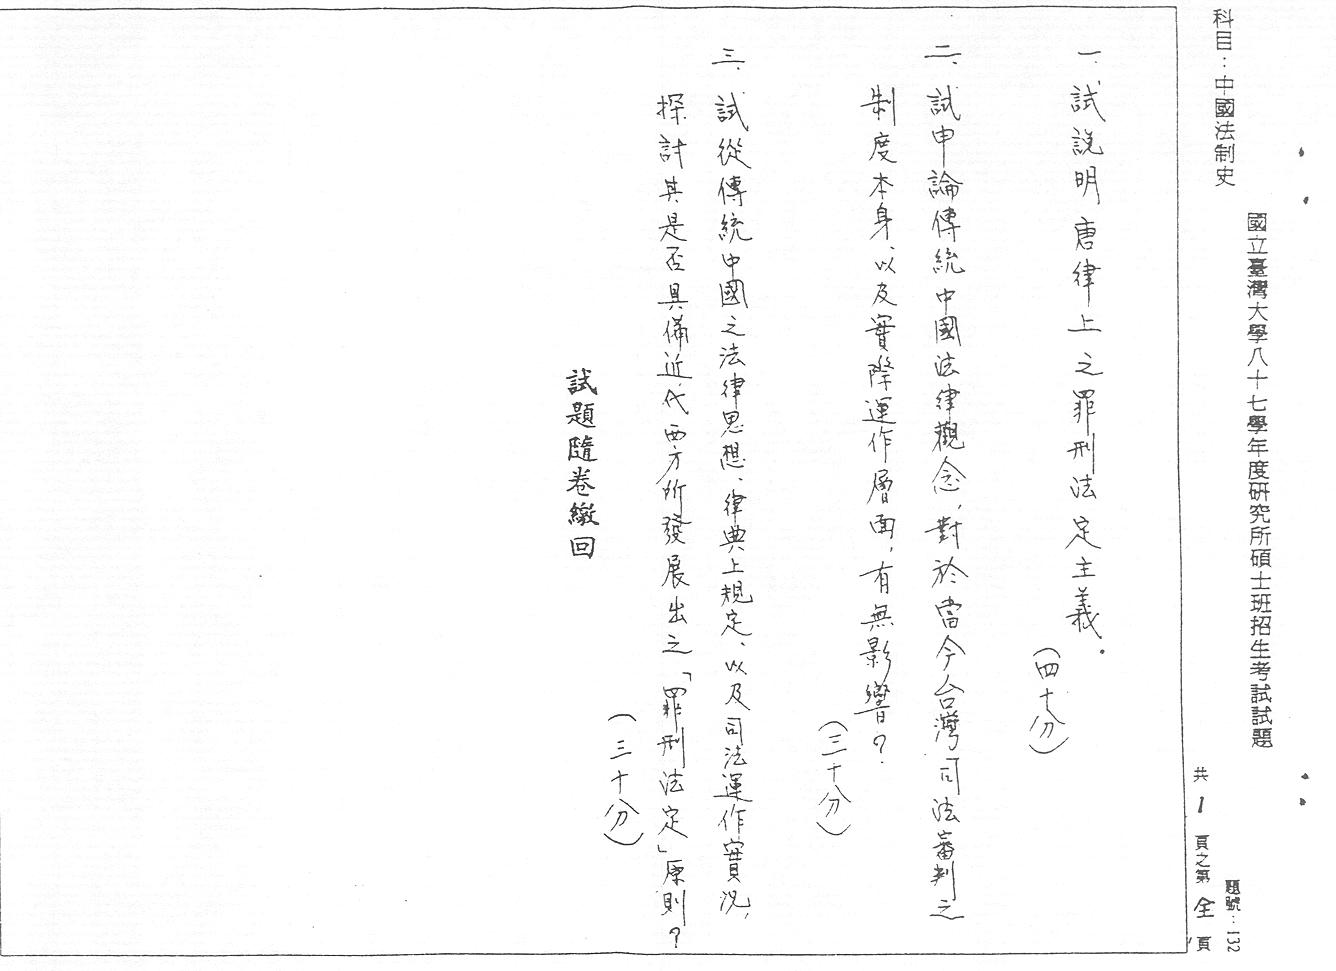 國立臺灣大學八十七學年度研究所碩士班招生考試試題
題號：132
科目：中國法制史
共 1 頁之第 全 頁
一、試說明唐律上之罪刑法定主義。
(四十分)
二、試申論傳統中國法律觀念，對於當今台灣司法審判之
制度本身、以及實際運作層面，有無影響？
(三十分)
三、試從傳統中國之法律思想、律典上規定、以及司法運作實況，
探討其是否具備近代西方所發展出之「罪刑法定」原則？
(三十分)
試題隨卷繳回